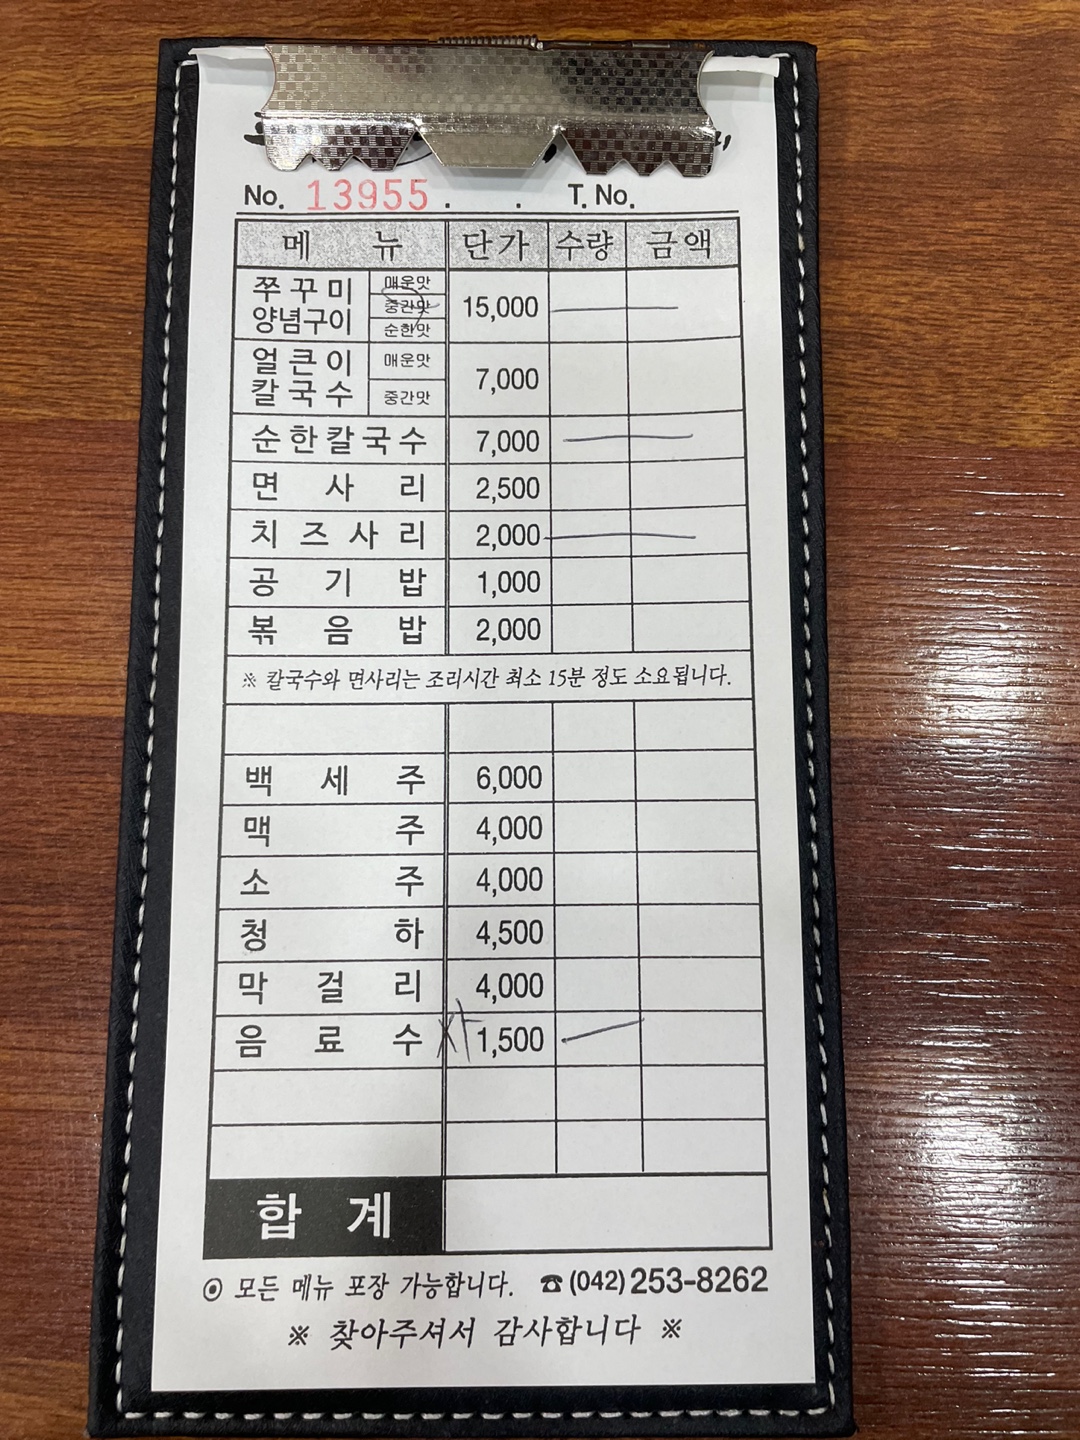 No. 13955 . . T. No.
메뉴 단가 수량 금액
쭈꾸미 양념구이 매운맛 중간맛 순한맛 15,000
얼큰이 칼국수 매운맛 중간맛 7,000
순한칼국수 7,000
면사리 2,500
치즈사리 2,000
공기밥 1,000
볶음밥 2,000
※ 칼국수와 면사리는 조리시간 최소 15분 정도 소요됩니다.
백세주 6,000
맥주 4,000
소주 4,000
청하 4,500
막걸리 4,000
음료수 1,500
합계
⊙ 모든 메뉴 포장 가능합니다. ☎ (042) 253-8262
※ 찾아주셔서 감사합니다 ※